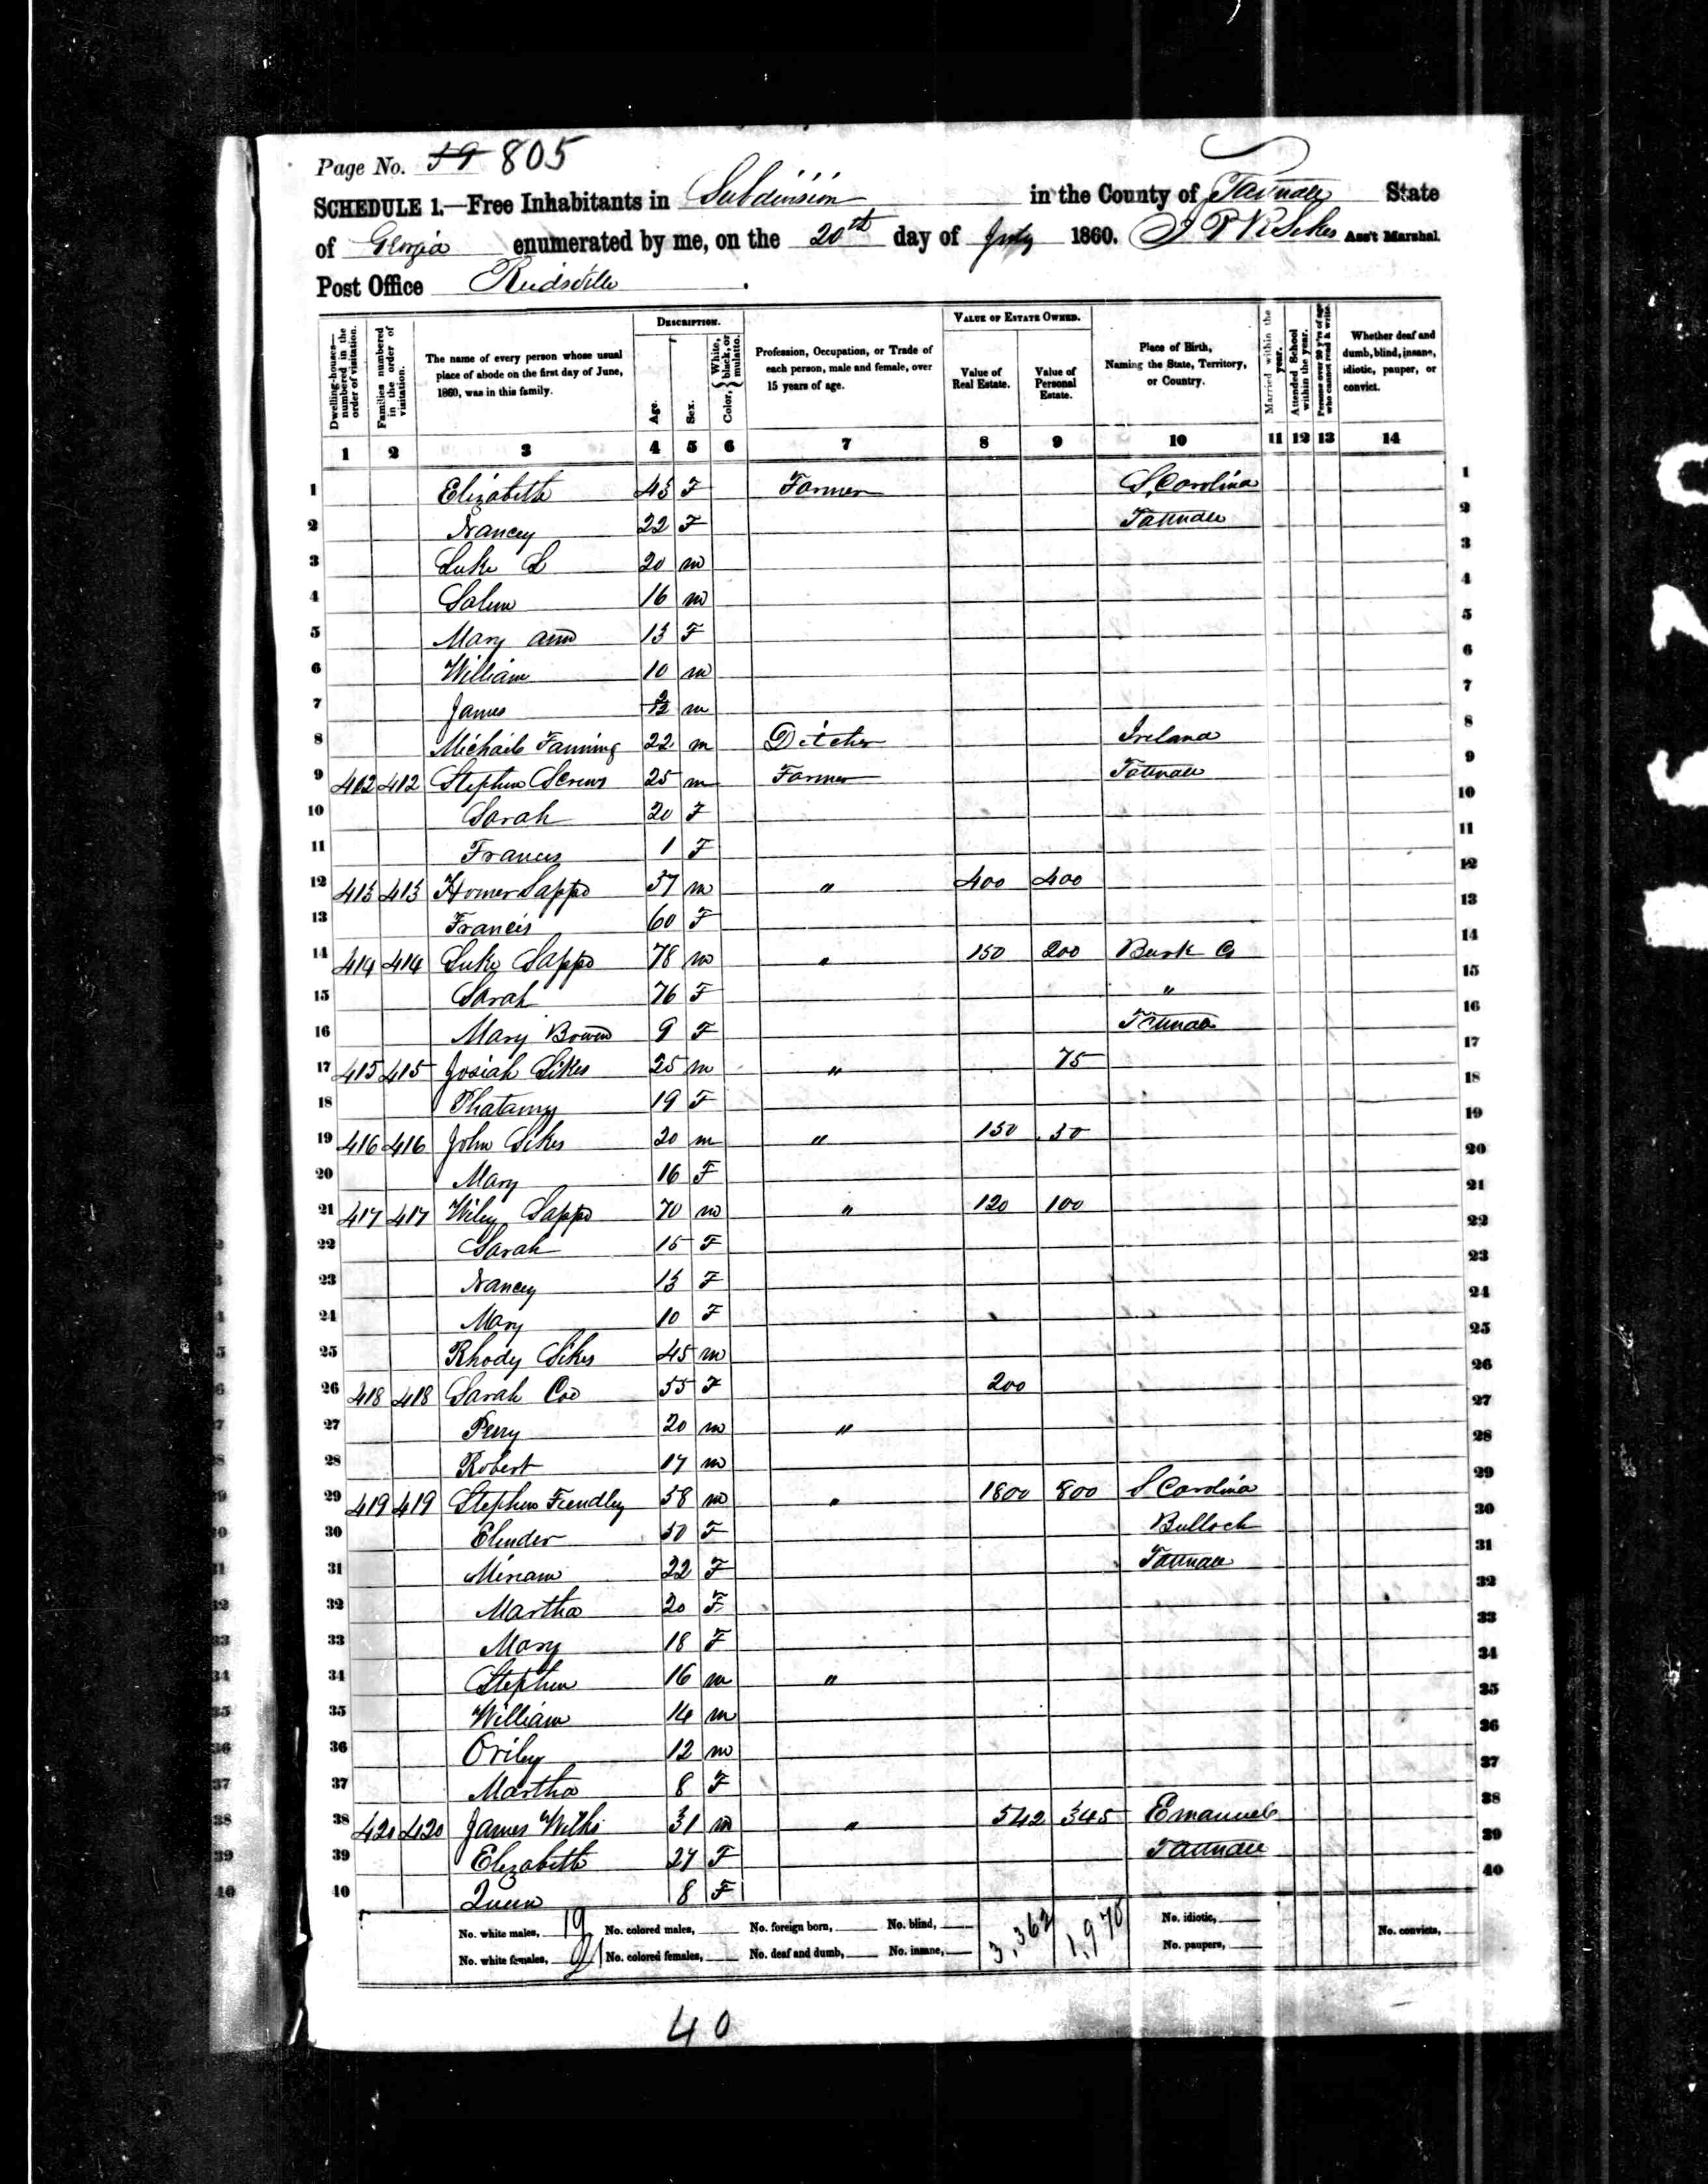 Page No. 59 805
SCHEDULE 1.—Free Inhabitants in Subdivision in the County of Tattnall State
of Georgia enumerated by me, on the 20th day of July 1860. Sikes Ass't Marshal.
Post Office Reidsville
Dwelling-houses—numbered in the order of visitation.
Families numbered in the order of visitation.
The name of every person whose usual place of abode on the first day of June, 1860, was in this family.
DESCRIPTION.
Age.
Sex.
Color, White, black, or mulatto.
Profession, Occupation, or Trade of each person, male and female, over 15 years of age.
VALUE OF ESTATE OWNED.
Value of Real Estate.
Value of Personal Estate.
Place of Birth, Naming the State, Territory, or Country.
Married within the year.
Attended School within the year.
Persons over 20 y'rs of age who cannot read & write.
Whether deaf and dumb, blind, insane, idiotic, pauper, or convict.
1 2 3 4 5 6 7 8 9 10 11 12 13 14
1 Elizabeth 45 F Farmer S. Carolina 1
2 Nancey 22 F Tattnall 2
3 Luke L 20 m 3
4 Salem 16 m 4
5 Mary ann 13 F 5
6 William 10 m 6
7 James 2/12 m 7
8 Michaile Fanning 22 m Ditcher Ireland 8
9 412 412 Stephen Screws 25 m Farmer Tattnall 9
10 Sarah 20 F 10
11 Frances 1 F 11
12 413 413 Homer Sapps 37 m " 400 400 12
13 Francis 60 F 13
14 414 414 Luke Sapps 78 m " 150 200 Burk Co 14
15 Sarah 76 F " 15
16 Mary Bowen 9 F Tattnall 16
17 415 415 Josiah Sikes 25 m " 75 17
18 Thatamy 19 F 18
19 416 416 John Sikes 20 m " 150 50 19
20 Mary 16 F 20
21 417 417 Wiley Sapps 70 m " 120 100 21
22 Sarah 15 F 22
23 Nancey 13 F 23
24 Mary 10 F 24
25 Rhody Sikes 45 m 25
26 418 418 Sarah Coe 55 F 200 26
27 Perry 20 m " 27
28 Robert 17 m 28
29 419 419 Stephen Fiendley 58 m " 1800 800 S Carolina 29
30 Elender 50 F Bulloch 30
31 Miriam 22 F Tattnall 31
32 Martha 20 F 32
33 Mary 18 F 33
34 Stephen 16 m " 34
35 William 14 m 35
36 Oriley 12 m 36
37 Martha 8 F 37
38 420 420 James Wilks 31 m " 542 345 Emanuel 38
39 Elizabeth 27 F Tattnall 39
40 Queen 8 F 40
No. white males, 19 No. colored males, No. foreign born, No. blind, 3,362 1,970 No. idiotic,
No. white females, 21 No. colored females, No. deaf and dumb, No. insane, No. paupers, No. convicts,
40